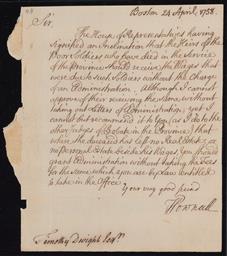 Boston 24 April, 1758.
Sir.
The House of Representatives having
signified an Inclination that the Heirs of the
Poor Soldiers who have died in the Service
of the Province should receive the Wages that
were due to such Soldiers without the Charge
of an Administration. Although I cannot
approve of their receiving the same without
taking out Letters of Administration; yet I
cannot but recommend it to you (as I do to the
other Judges of Probate in the Province) that
where the deceased has left no Real Estate, or
no personal Estate beside his Wages, You should
grant Administration without taking the Fees
for the same which you are by Law entitled
to take in the Office.
Your very good friend
T Pownall
Timothy Dwight Esqr.